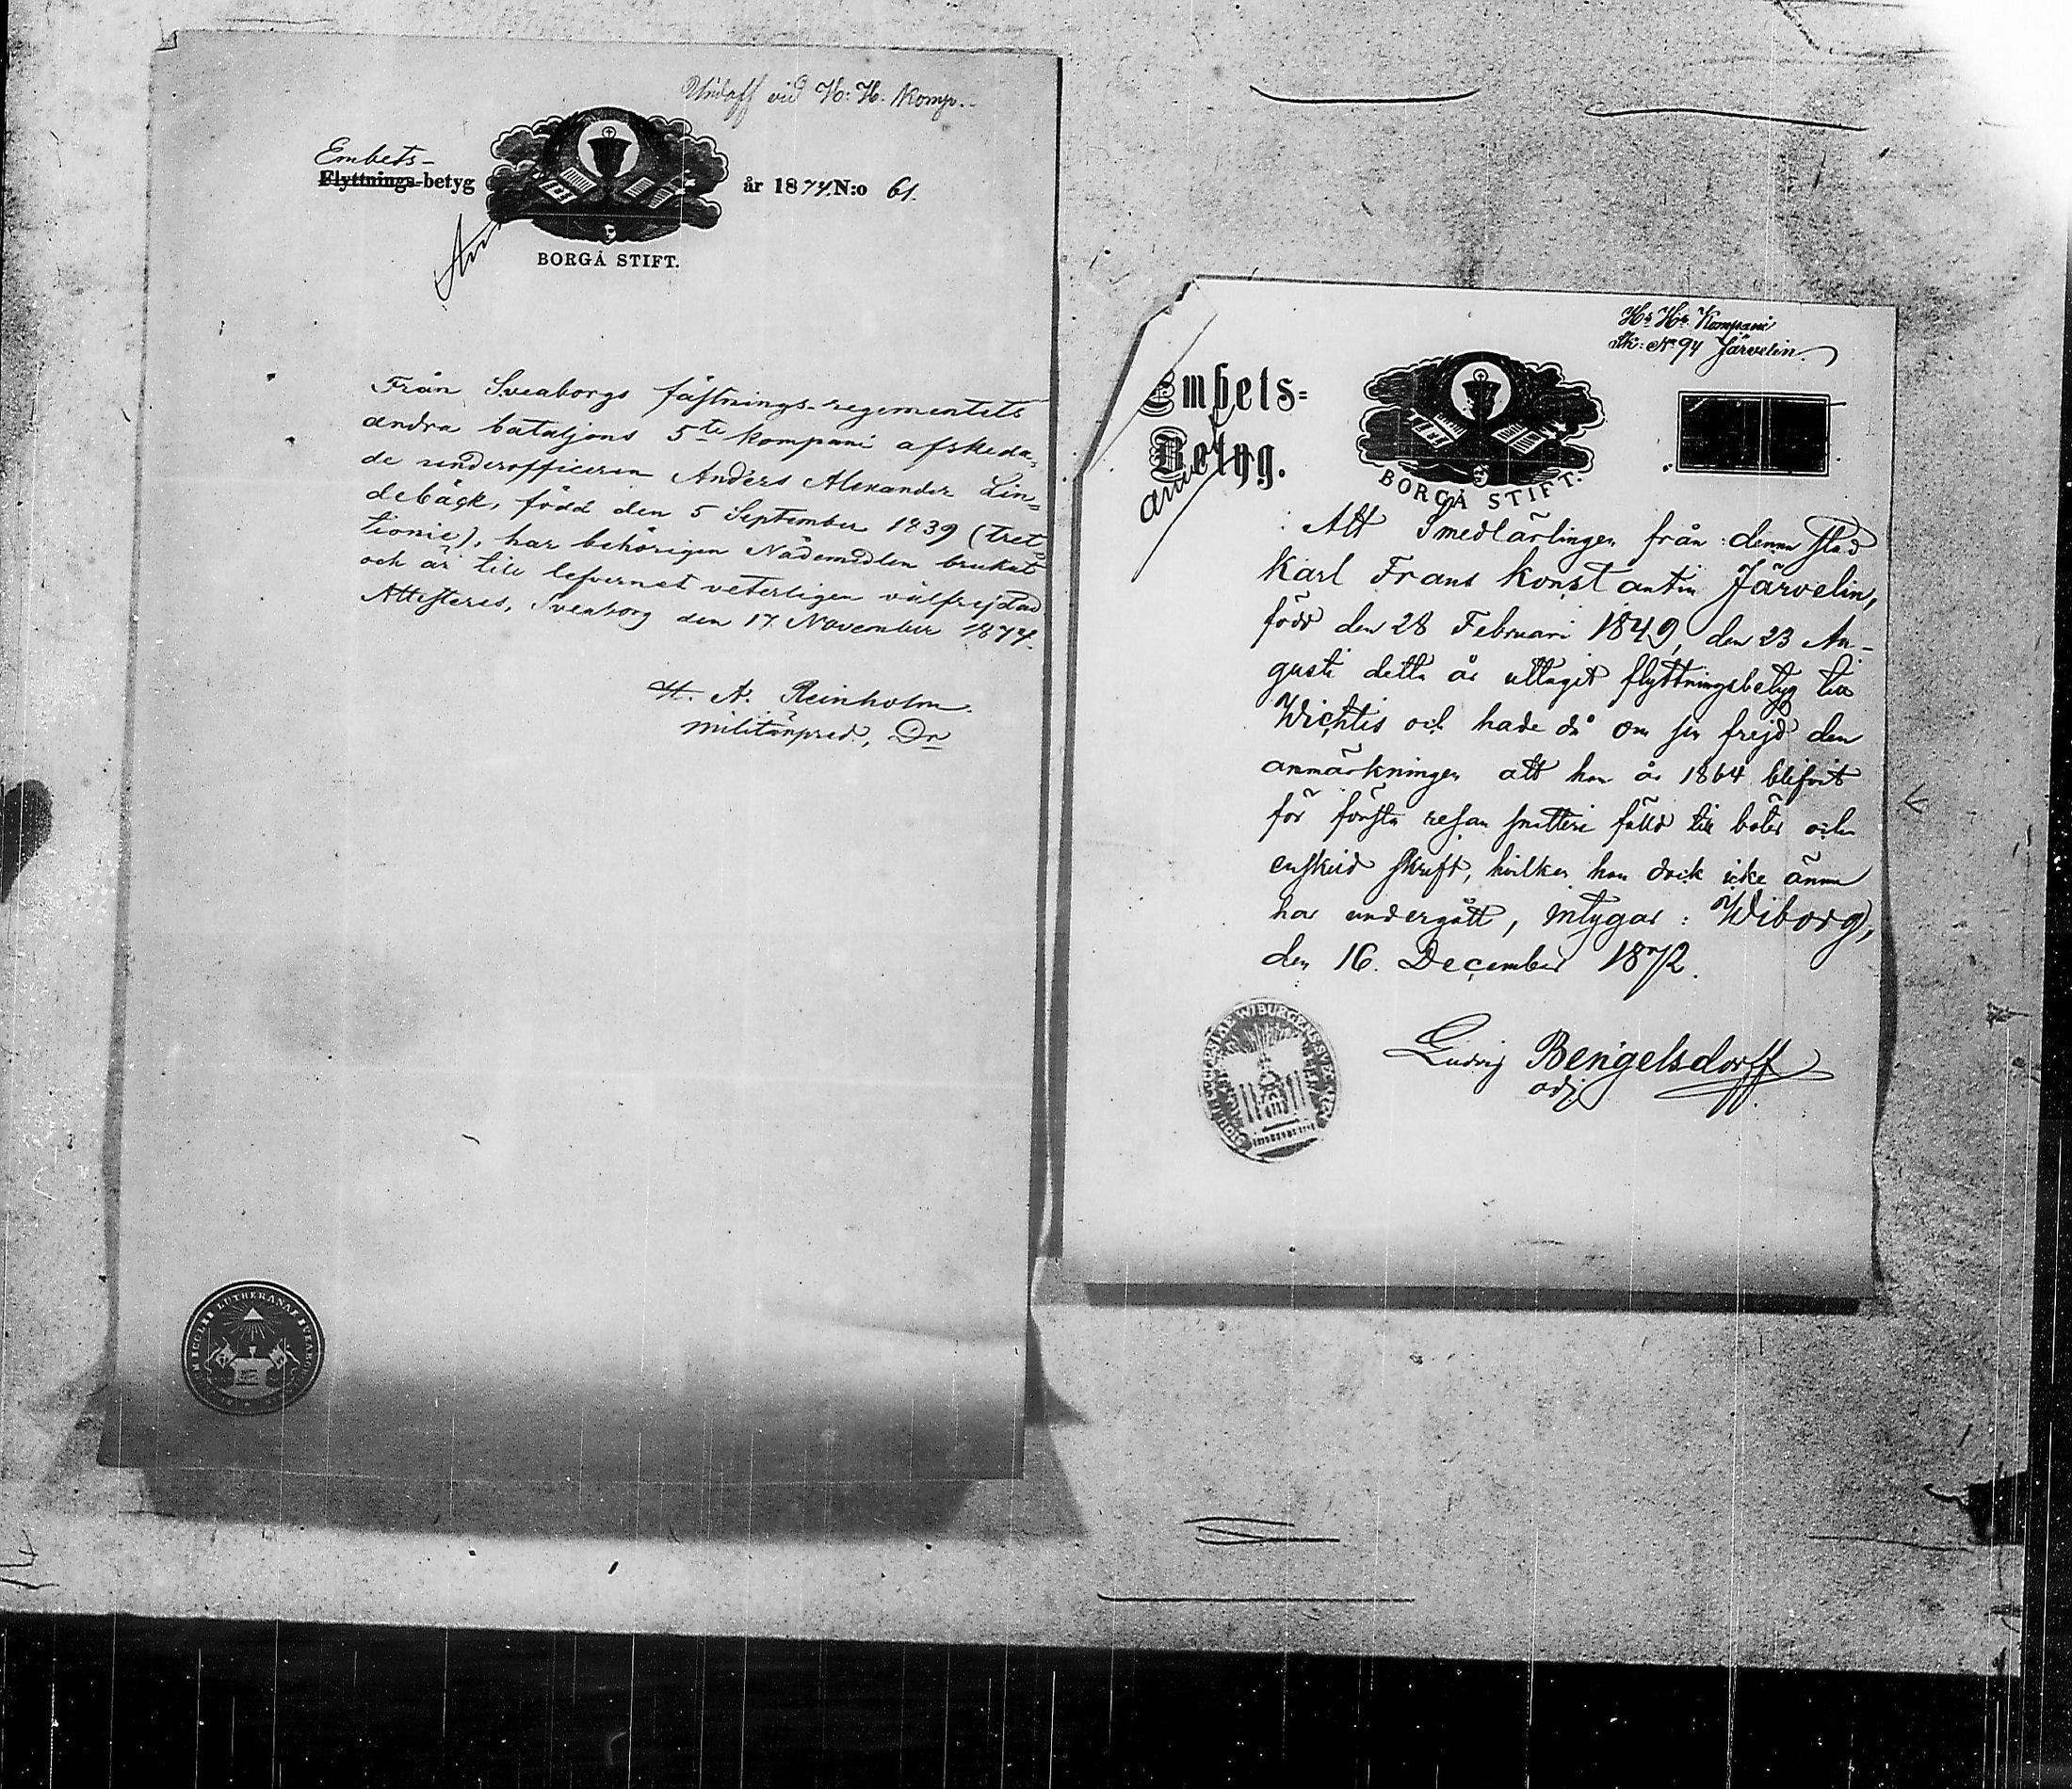 Undoff vid H: H. Komp.
Embets-
Flyttnings-betyg år 1874. N:o 61.
BORGÅ STIFT.
Från Sveaborgs fästnings-regementets
andra bataljons 5te kompani afskeda-
de underofficeren Anders Alexander Lin=
debäck, född den 5 September 1839 (tret-
tionie), har behörigen Nådemedlen brukat
och är till lefvernet veterligen välfrejdad
Attesteras, Sveaborg den 17 November 1874.
H. A. Reinholm.
militärpred., Dr
LUTHERANAE
Hr Hr Kompani
Sk: No 94 Järvelin
Embets=
Betyg.
BORGÅ STIFT.
Att Smedlärlingen från denna stad
Karl Frans Konstantin Järvelin,
född den 28 Februari 1849, den 23 Au-
gusti detta år uttagit flyttningsbetyg till
Wichtis och hade då om sin frejd den
anmärkningen att han år 1864 blifvit
för första resan snatteri fälld till böter och
enskild skrift, hvilken han dock icke ännu
har undergått, intygar: Wiborg,
den 16. December 1872.
Ludvig Bengelsdorff
adj.
WIBURGENS